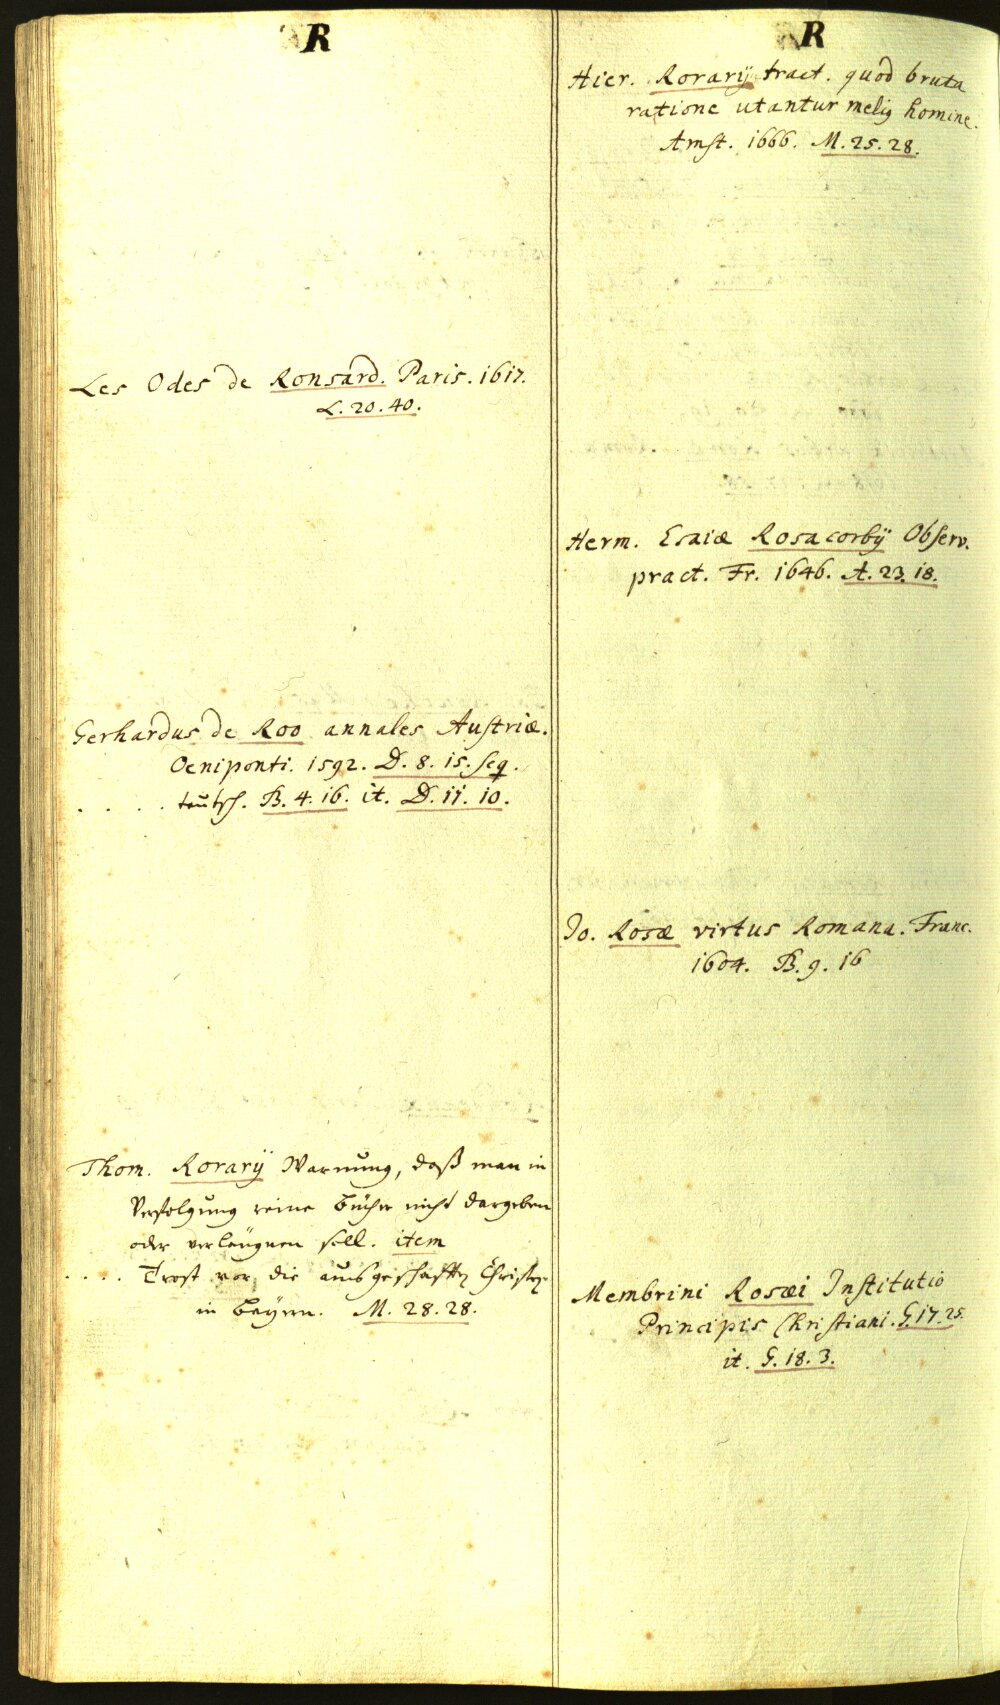 R
Les Odes de Ronsard. Paris. 1617.
L. 20. 40.
Gerhardus de Roo annales Austriæ.
Oeniponti. 1592. D. 8. 15. seq.
. . . . teütsch. B. 4. 16. it. D. 11. 10.
Thom. Rorarÿ Warnung, daß man in
Verfolgung reine Bücher nicht dargeben
oder verleügnen soll. item
. . . . Trost vor die ausgeschafften Christen
in Beÿrn. M. 28. 28.
R
Hier. Rorarÿ tract. quod bruta
ratione utantur melius homine.
Amst. 1666. M. 25. 28.
Herm. Esaiæ Rosacorbÿ Observ.
pract. Fr. 1646. A. 23. 18.
Jo. Rosæ virtus Romana. Franc.
1604. B. 9. 16
Membrini Rosæi Institutio
Principis Christiani. G. 17. 25.
it. G. 18. 3.